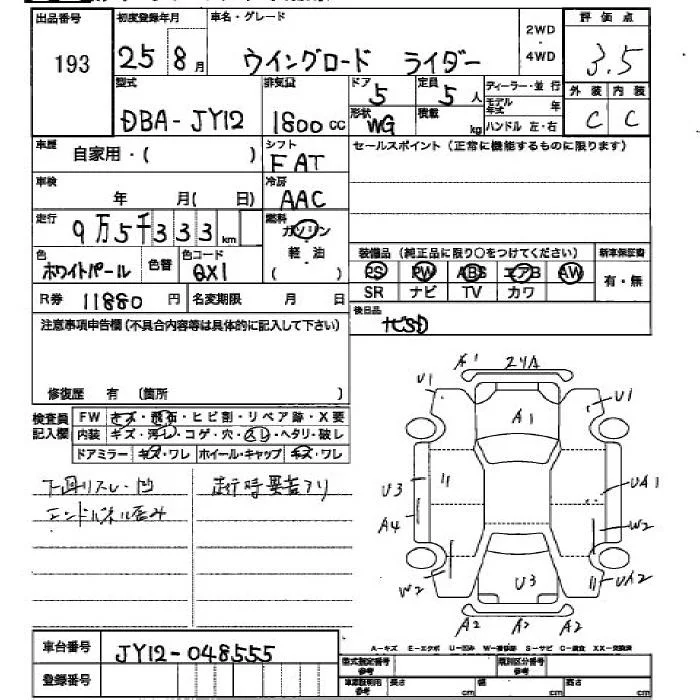 出品番号 初度登録年月 車名・グレード 2WD・4WD 評価点
193 25 8月 ウイングロード ライダー 3.5
型式 排気量 ドア 定員 ディーラー・並行 外装 内装
DBA-JY12 1800cc 5 5人 モデル年式 年 C C
形状 WG 積載 kg ハンドル 左・右
車歴 自家用・( ) シフト FAT セールスポイント(正常に機能するものに限ります)
車検 年 月(日) 冷房 AAC
走行 9万5千333km 燃料 ガソリン・軽油( )
色 ホワイトパール 色替 色コード QX1
装備品(純正品に限り○をつけてください) 新車保証書
PS PW ABS エアB AW 有・無
SR ナビ TV カワ
R券 11880円 名変期限 月 日 後日品 ナビSD
注意事項申告欄(不具合内容等は具体的に記入して下さい)
修復歴 有 (箇所 )
検査員記入欄 FW キズ・飛石・ヒビ割・リペア跡・X要
内装 キズ・汚レ・コゲ・穴・スレ・ヘタリ・破レ
ドアミラー キズ・ワレ ホイール・キャップ キズ・ワレ
下廻リスレ・凹 走行時異音アリ
エンドパネル歪み
A1 2YA
U1 A1 U1
U3 UA1
A4 W2
W2 U3 UA2
A2 A2 A2
A-キズ E-エクボ U-凹み W-補修跡 S-サビ C-腐食 XX-交換済
車台番号 JY12-048555
登録番号
型式指定番号 参考 類別区分番号 参考
車庫証明用 参考 長さ cm 幅 cm 高さ cm